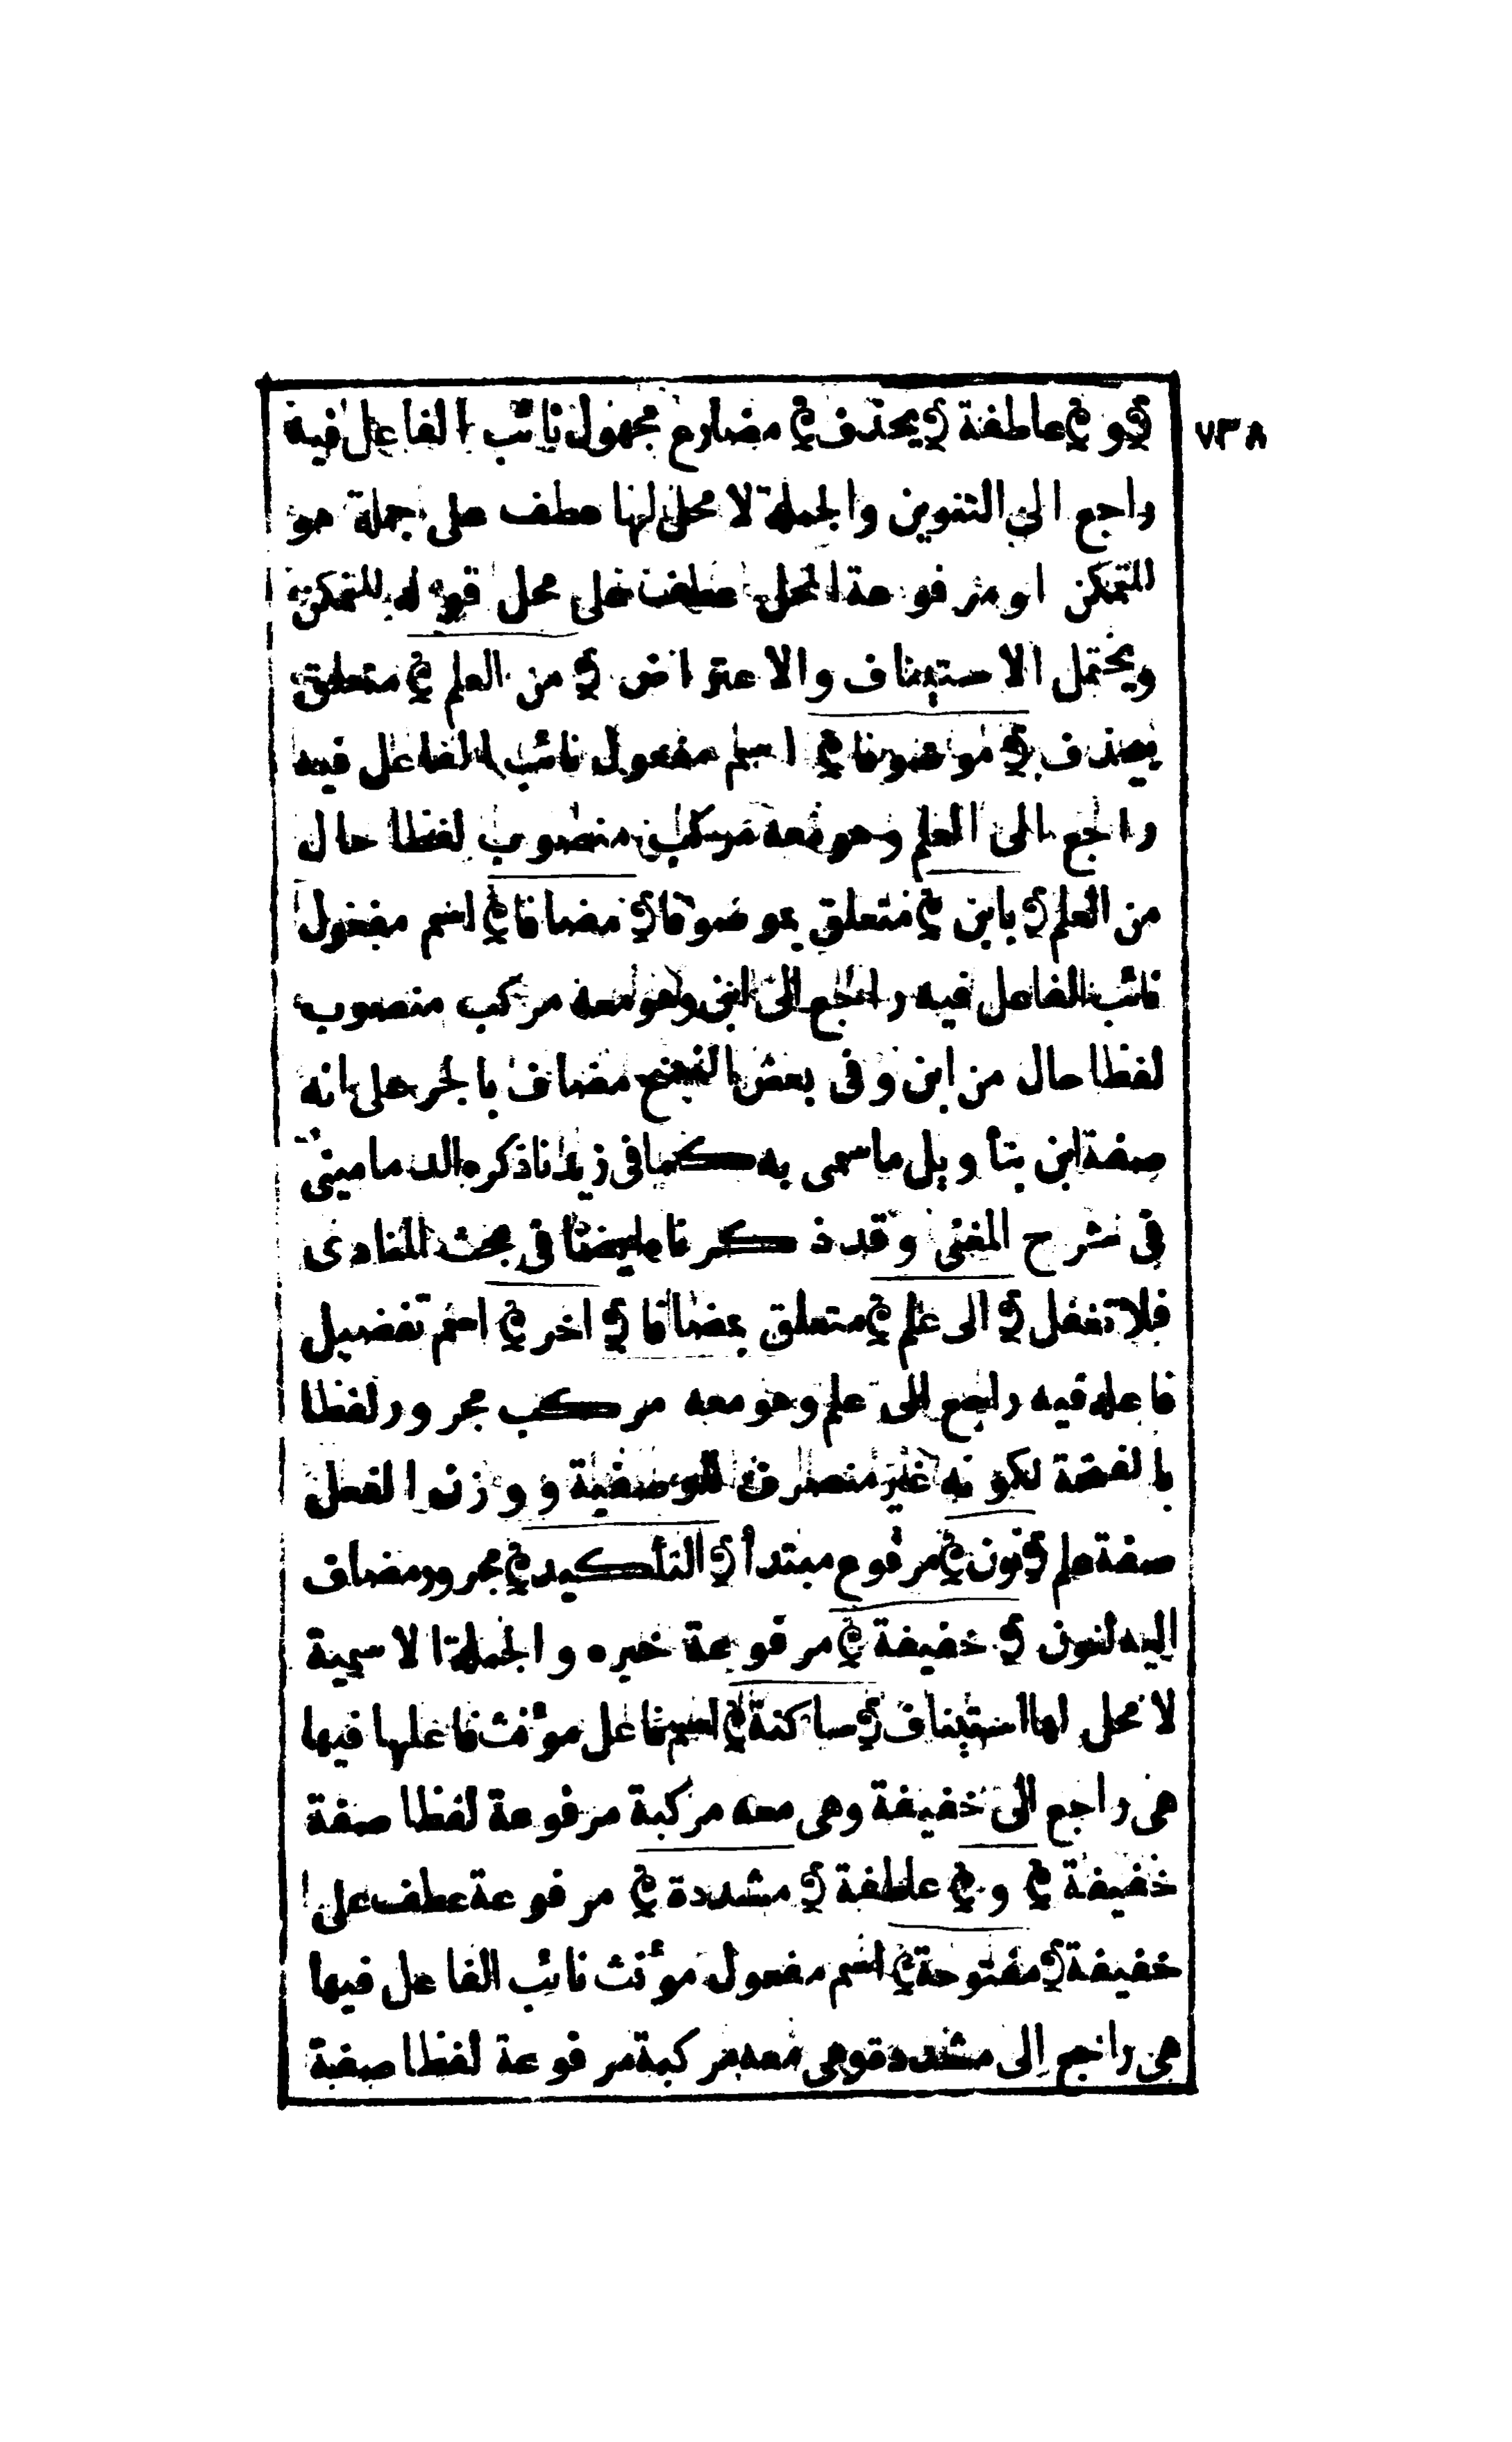 ٧٣٨
﴿و﴾ عاطفة ﴿يحذف﴾ مضارع مجهول نائب الفاعل فيه
راجع الى التنوين والجملة لا محل لها عطف على جملة هو
للتمكن او مرفوعة المحل عطف على محل قوله للتمكن
ويحتمل الاستيناف والاعتراض ﴿من العلم﴾ متعلق
بيحذف ﴿موصوفا﴾ اسم مفعول نائب الفاعل فيه
راجع الى العلم وهو معه مركب منصوب لفظا حال
من العلم ﴿بابن﴾ متعلق بموصوفا ﴿مضافا﴾ اسم مفعول
نائب الفاعل فيه راجع الى ابن وهو معه مركب منصوب
لفظا حال من ابن وفى بعض النسخ مضاف بالجر على انه
صفة ابن بتأويل ما سمى به كما فى زيدنا ذكره الدمامينى
فى شرح المغنى وقد ذكرنا ايضا فى بحث المنادى
فلا تغفل ﴿الى علم﴾ متعلق بمضافا ﴿اخر﴾ اسم تفضيل
فاعله فيه راجع الى علم وهو معه مركب مجرور لفظا
بالفتحة لكونه غير منصرف للوصفية ووزن الفعل
صفة علم ﴿نون﴾ مرفوع مبتدأ ﴿التأكيد﴾ مجرور مضاف
اليه لنون ﴿خفيفة﴾ مرفوعة خبره والجملة الاسمية
لا محل لها استيناف ﴿ساكنة﴾ اسم فاعل مؤنث فاعلها فيها
هى راجع الى خفيفة وهى معه مركبة مرفوعة لفظا صفة
خفيفة ﴿و﴾ عاطفة ﴿مشددة﴾ مرفوعة عطف على
خفيفة ﴿مفتوحة﴾ اسم مفعول مؤنث نائب الفاعل فيها
هى راجع الى مشددة وهى معه مركبة مرفوعة لفظا صفة